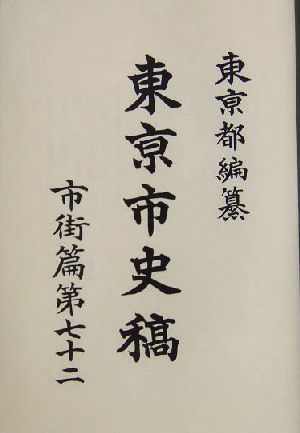 東亰都編纂
東亰市史稿
市街篇第七十二